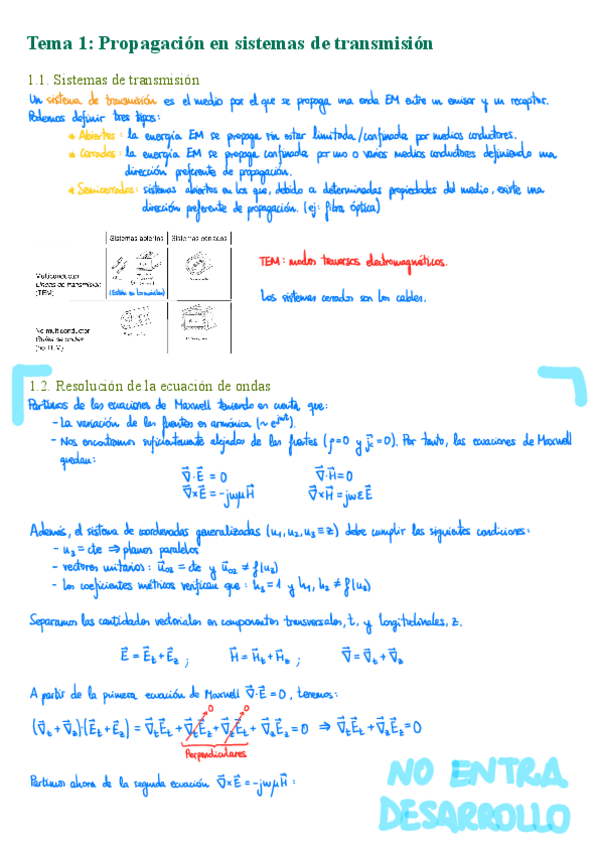 Tema 1: Propagación en sistemas de transmisión
1.1. Sistemas de transmisión
Un sistema de transmisión es el medio por el que se propaga una onda EM entre un emisor y un receptor.
Podemos definir tres tipos:
* Abiertos: la energía EM se propaga sin estar limitada/confinada por medios conductores.
* Cerrados: la energía EM se propaga confinada por uno o varios medios conductores definiendo una
dirección preferente de propagación.
* Semicerrados: sistemas abiertos en los que, debido a determinadas propiedades del medio, existe una
dirección preferente de propagación. (ej: fibra óptica)
Sistemas abiertos Sistemas cerrados
Multiconductor
Líneas de transmisión
(TEM)
No multiconductor
(no TEM)
TEM: modos transversos electromagnéticos.
Los sistemas cerrados son los cables.
1.2. Resolución de la ecuación de ondas
Partimos de las ecuaciones de Maxwell teniendo en cuenta que:
- La variación de las fuentes es armónica (~ e^jωt).
- Nos encontramos suficientemente alejados de las fuentes (ρ=0 y J⃗c=0). Por tanto, las ecuaciones de Maxwell
quedan:
∇⃗·E⃗ = 0 ∇⃗·H⃗ = 0
∇⃗×E⃗ = -jωμH⃗ ∇⃗×H⃗ = jωεE⃗
Además, el sistema de coordenadas generalizadas (u₁, u₂, u₃ ≡ z) debe cumplir las siguientes condiciones:
- u₃ = cte ⇒ planos paralelos
- vectores unitarios: u⃗₀₃ = cte y u⃗₀₂ ≠ f(u₃)
- Los coeficientes métricos verifican que: h₃ = 1 y h₁, h₂ ≠ f(u₃)
Separamos las cantidades vectoriales en componentes transversales, t, y longitudinales, z.
E⃗ = E⃗t + E⃗z ; H⃗ = H⃗t + H⃗z ; ∇⃗ = ∇⃗t + ∇⃗z
A partir de la primera ecuación de Maxwell ∇⃗·E⃗ = 0, tenemos:
0 0
(∇⃗t + ∇⃗z)·(E⃗t + E⃗z) = ∇⃗tE⃗t + ∇⃗tE⃗z + ∇⃗zE⃗t + ∇⃗zE⃗z = 0 ⇒ ∇⃗tE⃗t + ∇⃗zE⃗z = 0
Perpendiculares
Partimos ahora de la segunda ecuación ∇⃗×E⃗ = -jωμH⃗ :
NO ENTRA
DESARROLLO